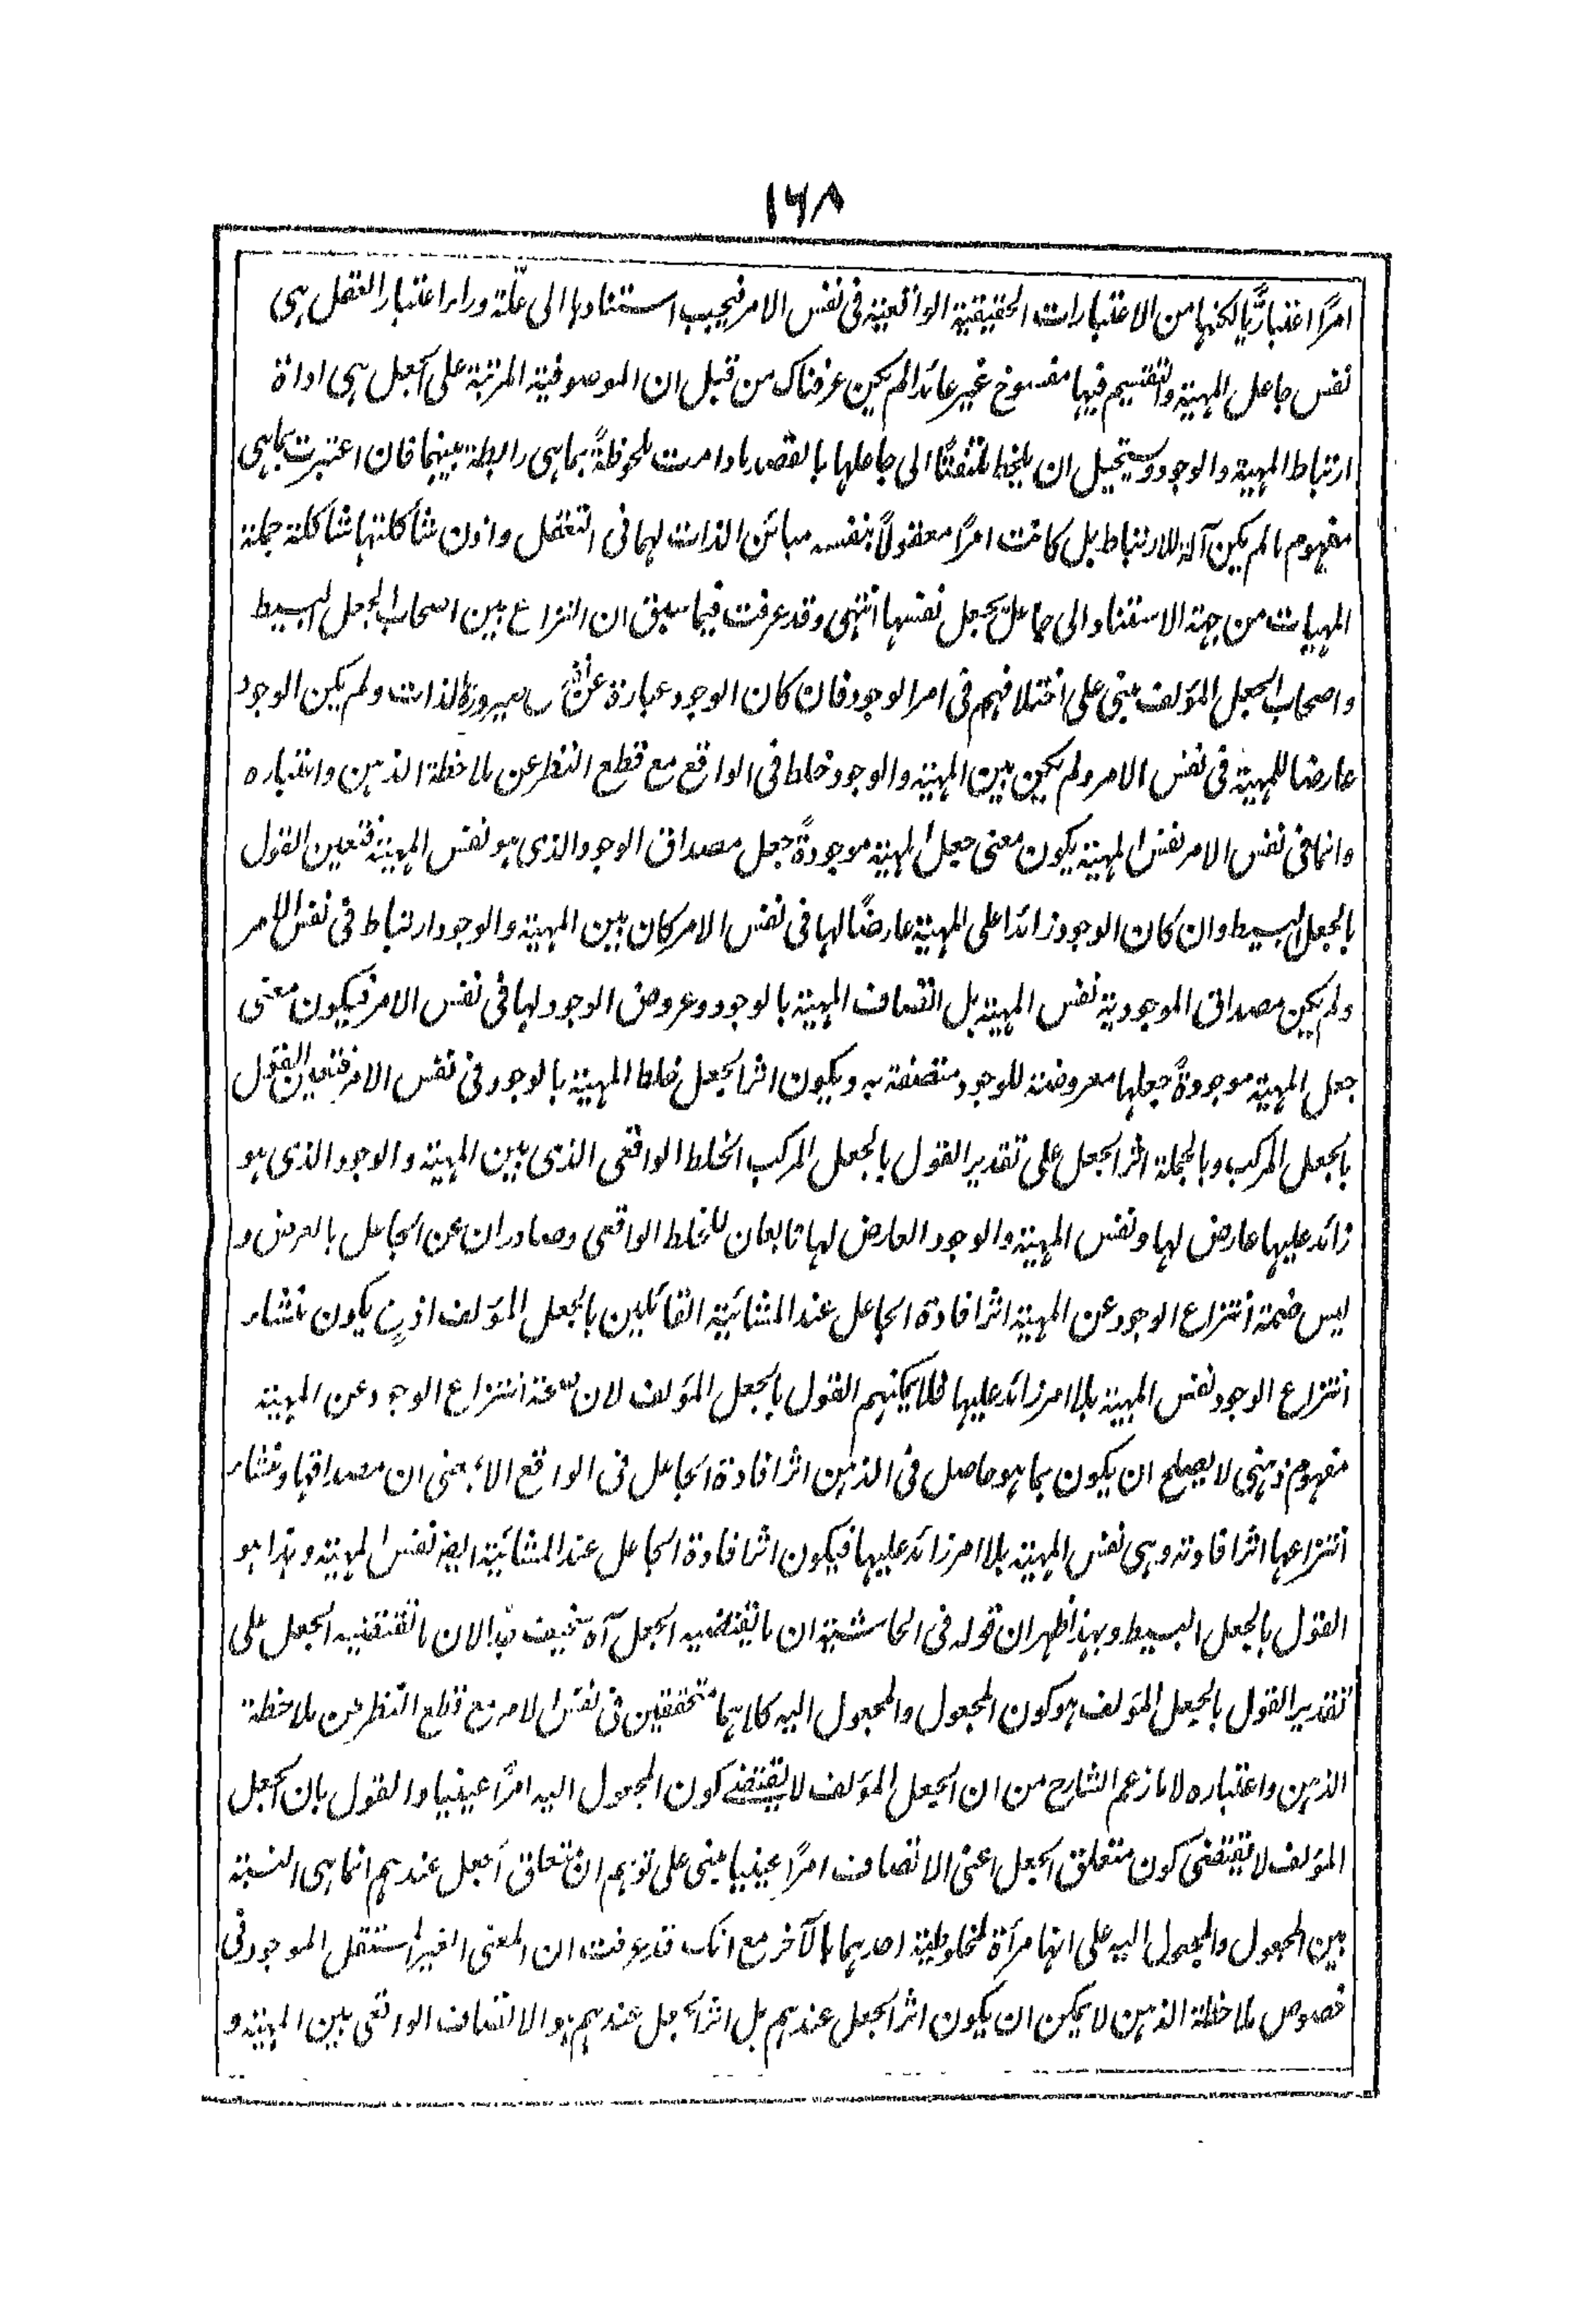 ١٦٨
امرًا اعتباريًّا لكنها من الاعتبارات الحقيقية الواقعية فى نفس الامر فيجب استنادها الى علّة وراء اعتبار العقل هى
نفس جاعل المهية والتقسيم فيها مفسوخ غير عائد الم يكن عرفناك من قبل ان الموصوفية المرتبة على الجعل هى اداة
ارتباط المهية والوجود ويستحيل ان يلحظ ملتفتًا الى جاعلها بالقصد ما دامت ملحوظةً بما هى رابطة بينهما فان اعتبرت بما هى
مفهوم ما لم يكن آلة للارتباط بل كانت امرًا معقولًا بنفسه مبائن الذات لهما فى التعقل واذن شاكلتها شاكلة جملة
المهيات من جهة الاستناد الى جاعل يجعل نفسها انتهى وقد عرفت فيما سبق ان النزاع بين اصحاب الجعل البسيط
واصحاب الجعل المؤلف مبنى على اختلافهم فى امر الوجود فان كان الوجود عبارة عن نفس صيرورة الذات ولم يكن الوجود
عارضا للمهية فى نفس الامر ولم يكن بين المهية والوجود خلط فى الواقع مع قطع النظر عن ملاحظة الذهن واعتباره
وانما فى نفس الامر نفس المهية يكون معنى جعل المهية موجودةً جعل مصداق الوجود الذى هو نفس المهية فتعين القول
بالجعل البسيط وان كان الوجود زائدا على المهية عارضًا لها فى نفس الامر كان بين المهية والوجود ارتباط فى نفس الامر
ولم يكن مصداق الموجودية نفس المهية بل اتصاف المهية بالوجود وعروض الوجود لها فى نفس الامر فيكون معنى
جعل المهية موجودةً جعلها معروضة للوجود متصفة به ويكون اثر الجعل خلط المهية بالوجود فى نفس الامر فتعين القول
بالجعل المركب وبالجملة اثر الجعل على تقدير القول بالجعل المركب الخلط الواقعى الذى بين المهية والوجود الذى هو
زائد عليها عارض لها ونفس المهية والوجود العارض لها تابعان للخلط الواقعى وصادران عن الجاعل بالعرض و
ليس صحة انتزاع الوجود عن المهية اثر افادة الجاعل عند المشائية القائلين بالجعل المؤلف اذ ح يكون منشاء
انتزاع الوجود نفس المهية بلا امر زائد عليها فلا يمكنهم القول بالجعل المؤلف لان صحة انتزاع الوجود عن المهية
مفهوم ذهنى لا يصلح ان يكون بما هو حاصل فى الذهن اثر افادة الجاعل فى الواقع الا بمعنى ان مصداقها ومنشاء
انتزاعها اثر افادته وهى نفس المهية بلا امر زائد عليها فيكون اثر افادة الجاعل عند المشائية ايضا نفس المهية وهذا هو
القول بالجعل البسيط وبهذا ظهر ان قوله فى الحاشية ان ما يقتضيه الجعل آه سخيف جدا لان ما يقتضيه الجعل على
تقدير القول بالجعل المؤلف هو كون المجعول والمجعول اليه كلاهما متحققين فى نفس الامر مع قطع النظر عن ملاحظة
الذهن واعتباره لا ما زعم الشارح من ان الجعل المؤلف لا يقتضى كون المجعول اليه امرًا عينيا والقول بان الجعل
المؤلف لا يقتضى كون متعلق الجعل اعنى الاتصاف امرًا عينيا مبنى على توهم ان متعلق الجعل عندهم انما هى النسبة
بين المجعول والمجعول اليه على انها مرآة لمخلوطية احدهما بالآخر مع انك قد عرفت ان المعنى الغير المستقل الموجود فى
خصوص ملاحظة الذهن لا يمكن ان يكون اثر الجعل عندهم بل اثر الجعل عندهم هو الاتصاف الواقعى بين المهية و